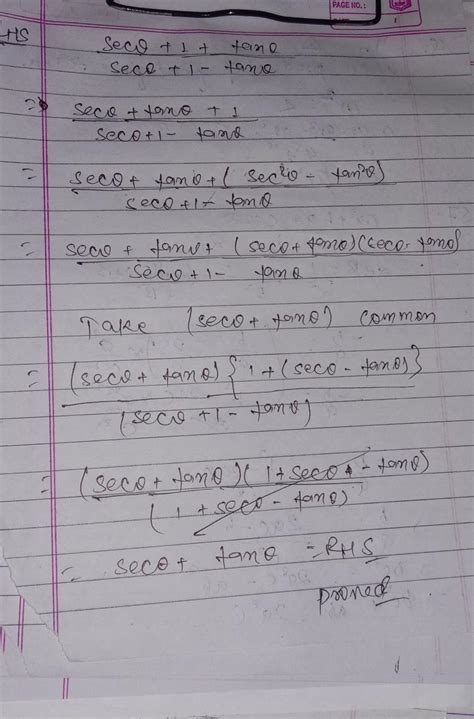 PAGE NO.:
HS secθ + 1 + tanθ
secθ + 1 - tanθ
=> secθ + tanθ + 1
secθ+1- tanθ
= secθ + tanθ + ( sec²θ - tan²θ)
secθ +1 - tanθ
= secθ + tanθ + (secθ+tanθ)(secθ- tanθ)
secθ+1- tanθ
Take (secθ + tanθ) common
= (secθ + tanθ) { 1+(secθ - tanθ)}
(secθ +1 - tanθ)
= (secθ + tanθ)( 1+secθ - tanθ)
( 1 +secθ - tanθ)
= secθ + tanθ =RHS
proned